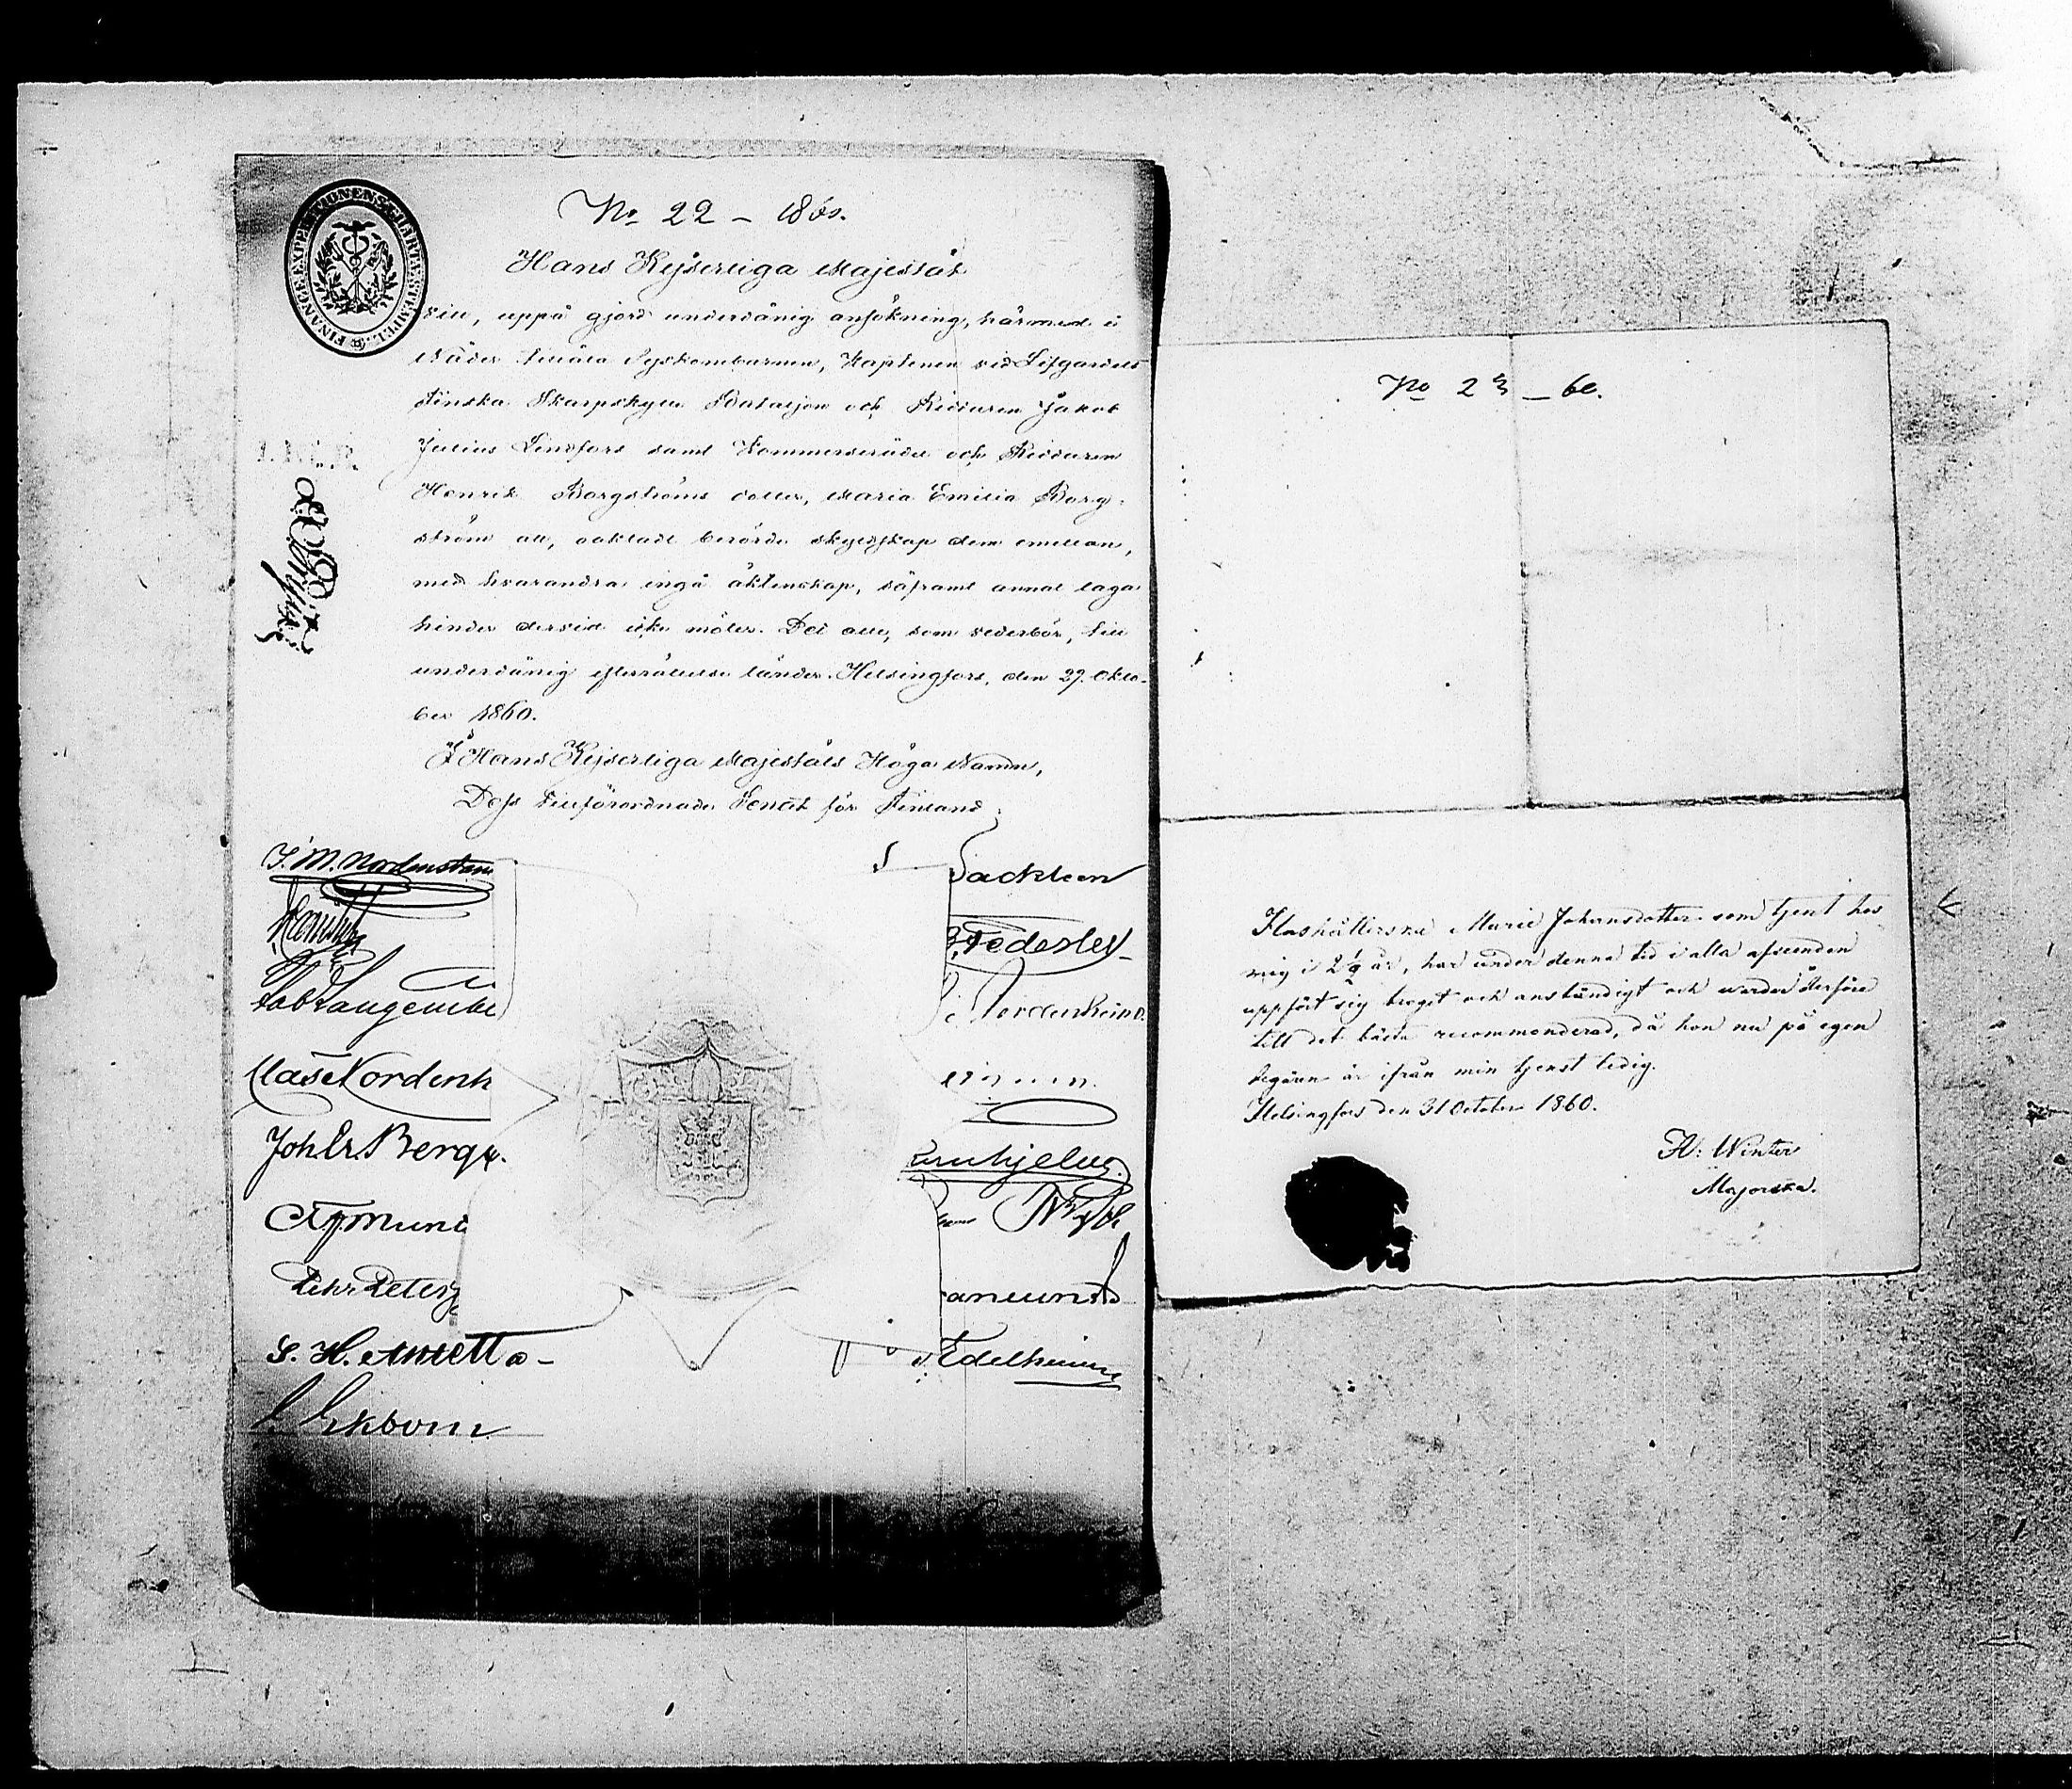 FINANCE EXPEDITIONENS CHARTÆ STEMPEL
No 22 – 1860.
Hans Kejserliga Majestät
vill, uppå gjord underdånig ansökning, härmed i
Nåder tillåta Syskonbarnen, Kaptenen vid Lifgardets
Finska Skarpskytte Bataljon och Riddaren Jakob
Julius Lindfors samt Kommerserådet och Riddaren
Henrik Borgströms dotter, Maria Emilia Borg-
ström att, oaktadt berörde skyldskap dem emellan,
med hvarandra ingå äktenskap, såframt annat laga
hinder dervid icke möter. Det alle, som vederbör, till
underdånig efterrättelse länder. Helsingfors, den 29. Okto-
ber 1860.
I Hans Kejserliga Majestäts Höga Namn,
Dess tillförordnade Senat för Finland
J. M. Nordenstam
S Sackleen
Federley
Fab Langenskiöld
Nordenheim.
Clas Nordenh eim
Joh Er. Bergb
C Aj Munc
Pehr Peters
S. H. Antell
Edelheim
Ekbom
No 23 – 60.
Hushållerskan Marie Johansdotter som tjent hos
mig i 2 1/2 år, har under denna tid i alla afseenden
uppfört sig troget och anständigt och warder derföre
till det bästa recommenderad, då hon nu på egen
begäran är ifrån min tjenst ledig.
Helsingfors den 31 October 1860.
H: Winter
Majorska.